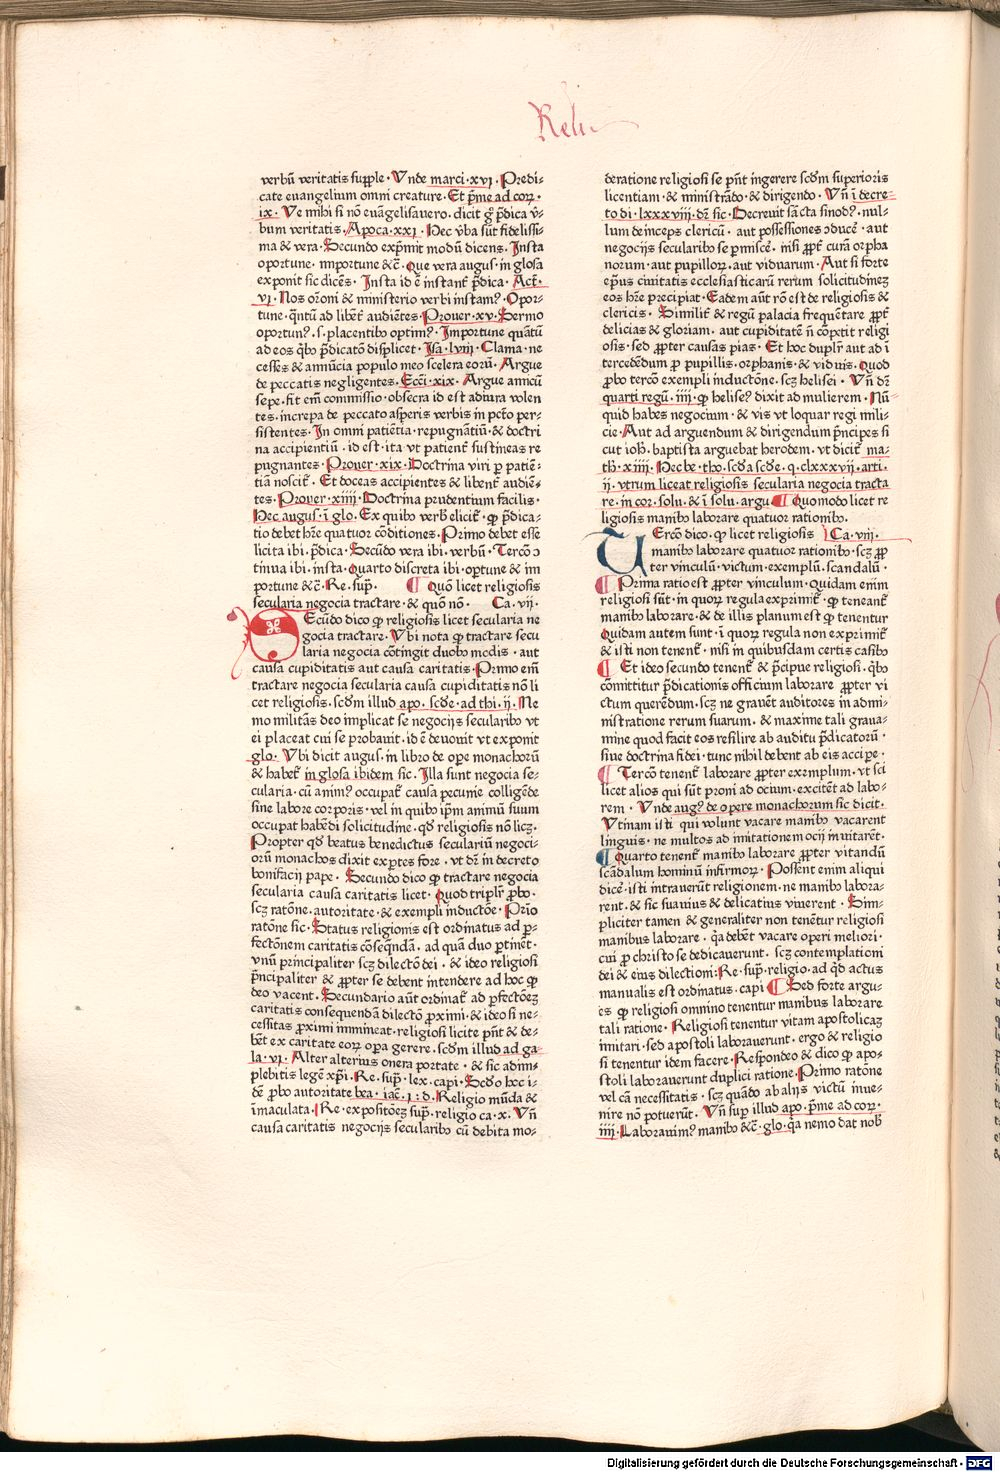 Reli
verbū veritatis supple · Vnde marci · xvi · Predi⸗
cate euangelium omni creature · Et p̄me ad corꝝ ·
ix · Ve mihi si nō euāgelisauero · dicit gͦ p̄dica v̄⸗
bum veritatis · Apoca · xxi · Hec v̄ba sūt fidelissi⸗
ma & vera · Secundo exp̄mit modū dicens · Insta
oportune · importune &c̄ · Que vera augus · in glosa
exponit sic dicēs · Insta id ē instant̄ p̄dica · Act̄ ·
vi · Nos or̄oni & ministerio verbi instamꝰ · Opor⸗
tune · q̄ntū ad libent̄ audiētes · Prouer · xv · Sermo
oportunꝰ · s · placentibꝰ optimꝰ · Importune quātū
ad eos q̄bꝰ p̄dicatō displicet · Isa · lviii · Clama · ne
cesses & annūcia populo meo scelera eorū · Argue
de peccatis negligentes · Ecci · xix · Argue amicū
sepe · fit em̄ commissio · obsecra id est adiura volen
tes · increpa de peccato asperis verbis in pctō per⸗
sistentes · In omni patiētia · repugnātiū · & doctri
na accipientiū · id est · ita vt patient̄ sustineas re
pugnantes · Prouer · xix · Doctrina viri ꝑ patiē⸗
tiā noscit̄ · Et doceas accipientes & libent̄ audiē⸗
tes · Prouer · xiiii · Doctrina prudentium facilis ·
Hec augus · ī glo · Ex quibꝰ verb̄ elicit̄ · ꝙ p̄dica⸗
tio debet hr̄e quatuor cōditiones · Primo debet esse
licita ibi · p̄dica · Secūdo vera ibi · verbū · Tercō ↄ
tinua ibi · insta · Quarto discreta ibi · oꝑtune & im
portune &c̄ · Re · sup̄ · ¶ Quō licet religiosis
secularia negocia tractare · & quō nō · Ca · vii ·
SEcūdo dico ꝙ religiosis licet secularia ne
gocia tractare · Vbi nota ꝙ tractare secu
laria negocia cōtingit duobꝰ modis · aut
causa cupiditatis aut causa caritatis · Primo em̄
tractare negocia secularia causa cupiditatis nō li
cet religiosis · scdm̄ illud apo · scd̄e · ad thi · ii · Ne
mo militās deo implicat se negocijs secularibꝰ vt
ei placeat cui se probauit · id ē deuouit vt exponit
glo · Vbi dicit augus · in libro de ope monachorū
& habet̄ in glosa ibidem sic · Illa sunt negocia se⸗
cularia · cū animꝰ occupat̄ causa pecunie colligēde
sine labore corporis · vel in quibꝰ ip̄m animū suum
occupat habēdi solicitudine · qd̄ religiosis nō licꝫ ·
Propter qd̄ beatus benedictus seculariū negoci⸗
orū monachos dixit exꝑtes fore · vt dꝛ̄ in decreto
bonifacij pape · Secundo dico ꝙ tractare negocia
secularia causa caritatis licet · Quod triplr̄ ꝓbo ·
scꝫ ratōne · autoritate · & exempli inductōe · Prīo
ratōne sic · Status religionis est ordinatus ad ꝑ⸗
fectōnem caritatis cōseq̄ndā · ad quā duo ꝑtinēt ·
vnū principaliter scꝫ dilectō dei · & ideo religiosi
p̄ncipaliter & ꝓpter se debent intendere ad hoc ꝙ
deo vacent · Secundario aūt ordinat̄ ad ꝑfectōeꝫ
caritatis consequendā dilectō ꝓximi · & ideo si ne⸗
cessitas ꝓximi immineat · religiosi licite pn̄t & de⸗
bēt ex caritate eoꝝ oꝑa gerere · scdm̄ illud ad ga⸗
la · vi · Alter alterius onera portate · & sic adim⸗
plebitis legē xp̄i · Re · sup̄ · lex · capi · Scd̄o hoc i⸗
dē ꝓbo autoritate bea · iac̄ · i : d · Religio mūda &
īmaculata · Re · expositōeꝫ sup̄ · religio ca · x · Vn̄
causa caritatis negocijs secularibꝰ cū debita mo⸗
deratione religiosi se pn̄t ingerere scdm̄ superioris
licentiam · & ministrādo · & dirigendo · Vn̄ ī decre⸗
to di · lxxxviii · dꝛ̄ sic · Decreuit sācta sinodꝰ · nul⸗
lum deinceps clericū · aut possessiones ↄducē · aut
negocijs secularibꝰ se ꝑmiscē · nisi ꝓpt̄ curā orpha
norum · aut pupilloꝝ · aut viduarum · Aut si forte
ep̄us ciuitatis ecclesiasticarū rerum solicitudineꝫ
eos hr̄e precipiat · Eadem aūt rō est de religiosis &
clericis · Similit̄ & regū palacia frequētare ꝓpt̄
delicias & gloriam · aut cupiditatē n̄ cōpetit religi
osis · sed ꝓpter causas pias · Et hoc duplr̄ aut ad ī
tercedēdum ꝑ pupillis · orphanis · & viduis · Quod
ꝓbo tercō exempli inductōne · scꝫ helisei · Vn̄ dꝛ̄
quarti regū · iiii · ꝙ heliseꝰ dixit ad mulierem · Nū⸗
quid habes negocium · & vis vt loquar regi mili⸗
cie · Aut ad arguendum & dirigendum p̄ncipes si
cut ioh̄ · baptista arguebat herodem · vt dicit̄ ma⸗
th · xiiii · Hec be · tho · scd̄a scd̄e · q · clxxxvii · arti ·
ii · vtrum liceat religiosis secularia negocia tracta
re · in cor · solu · & ī solu · argu ¶ Quomodo licet re
ligiosis manibꝰ laborare quatuor rationibꝰ ·
TErcō dico · ꝙ licet religiosis Ca · viii ·
manibꝰ laborare quatuor rationibꝰ · scꝫ ꝓp
ter vinculū · victum · exemplū · scandalū ·
¶ Prima ratio est ꝓpter vinculum · Quidam enim
religiosi sūt · in quoꝝ regula exprimit̄ · ꝙ teneant̄
manibꝰ laborare · & de illis planum est ꝙ tenentur
Quidam autem sunt · ī quoꝝ regula non exprimit̄
& isti non tenent̄ · nisi in quibusdam certis casibꝰ
¶ Et ideo secundo tenent̄ & p̄cipue religiosi · q̄bꝰ
cōmittitur p̄dicationis officium laborare ꝓpter vi
ctum querēdum · scꝫ ne grauēt auditores in admi⸗
nistratione rerum suarum · & maxime tali graua⸗
mine quod facit eos resilire ab auditu p̄dicatorū ·
siue doctrina fidei · tunc nihil debent ab eis accipe ·
¶ Tercō tenent̄ laborare ꝓpter exemplum · vt sci
licet alios qui sūt proni ad ocium · excitēt ad labo⸗
rem · Vnde augꝰ de opere monachorum sic dicit ·
Vtinam isti qui volunt vacare manibꝰ vacarent
linguis · ne multos ad imitationem ocij inuitarēt ·
¶ Quarto tenent̄ manibꝰ laborare ꝓpter vitandū
scādalum hominū infirmoꝝ · Possent enim aliqui
dicē · isti intrauerūt religionem · ne manibꝰ labora⸗
rent · & sic suauius & delicatius viuerent · Sim⸗
pliciter tamen & generaliter non tenētur religiosi
manibus laborare · q̄a debēt vacare operi meliori ·
cui ꝑ christo se dedicauerunt · scꝫ contemplationi
dei & eius dilectioni : Re · sup̄ · religio · ad qd̄ actus
manualis est ordinatus · capi ¶ Sed forte argu⸗
es ꝙ religiosi omnino tenentur manibus laborare
tali ratione · Religiosi tenentur vitam apostolicaꝫ
imitari · sed apostoli laborauerunt · ergo & religio
si tenentur idem facere · Respondeo & dico ꝙ apo⸗
stoli laborauerunt duplici ratione · Primo ratōne
vel cā necessitatis · scꝫ quādo ab alijs victū inue⸗
nire nō potuerūt · Vn̄ suꝑ illud apo · p̄me ad corꝝ ·
iiii · Laborauimꝰ manibꝰ &c̄ · glo · q̄a nemo dat nob̄
Digitalisierung gefördert durch die Deutsche Forschungsgemeinschaft - DFG